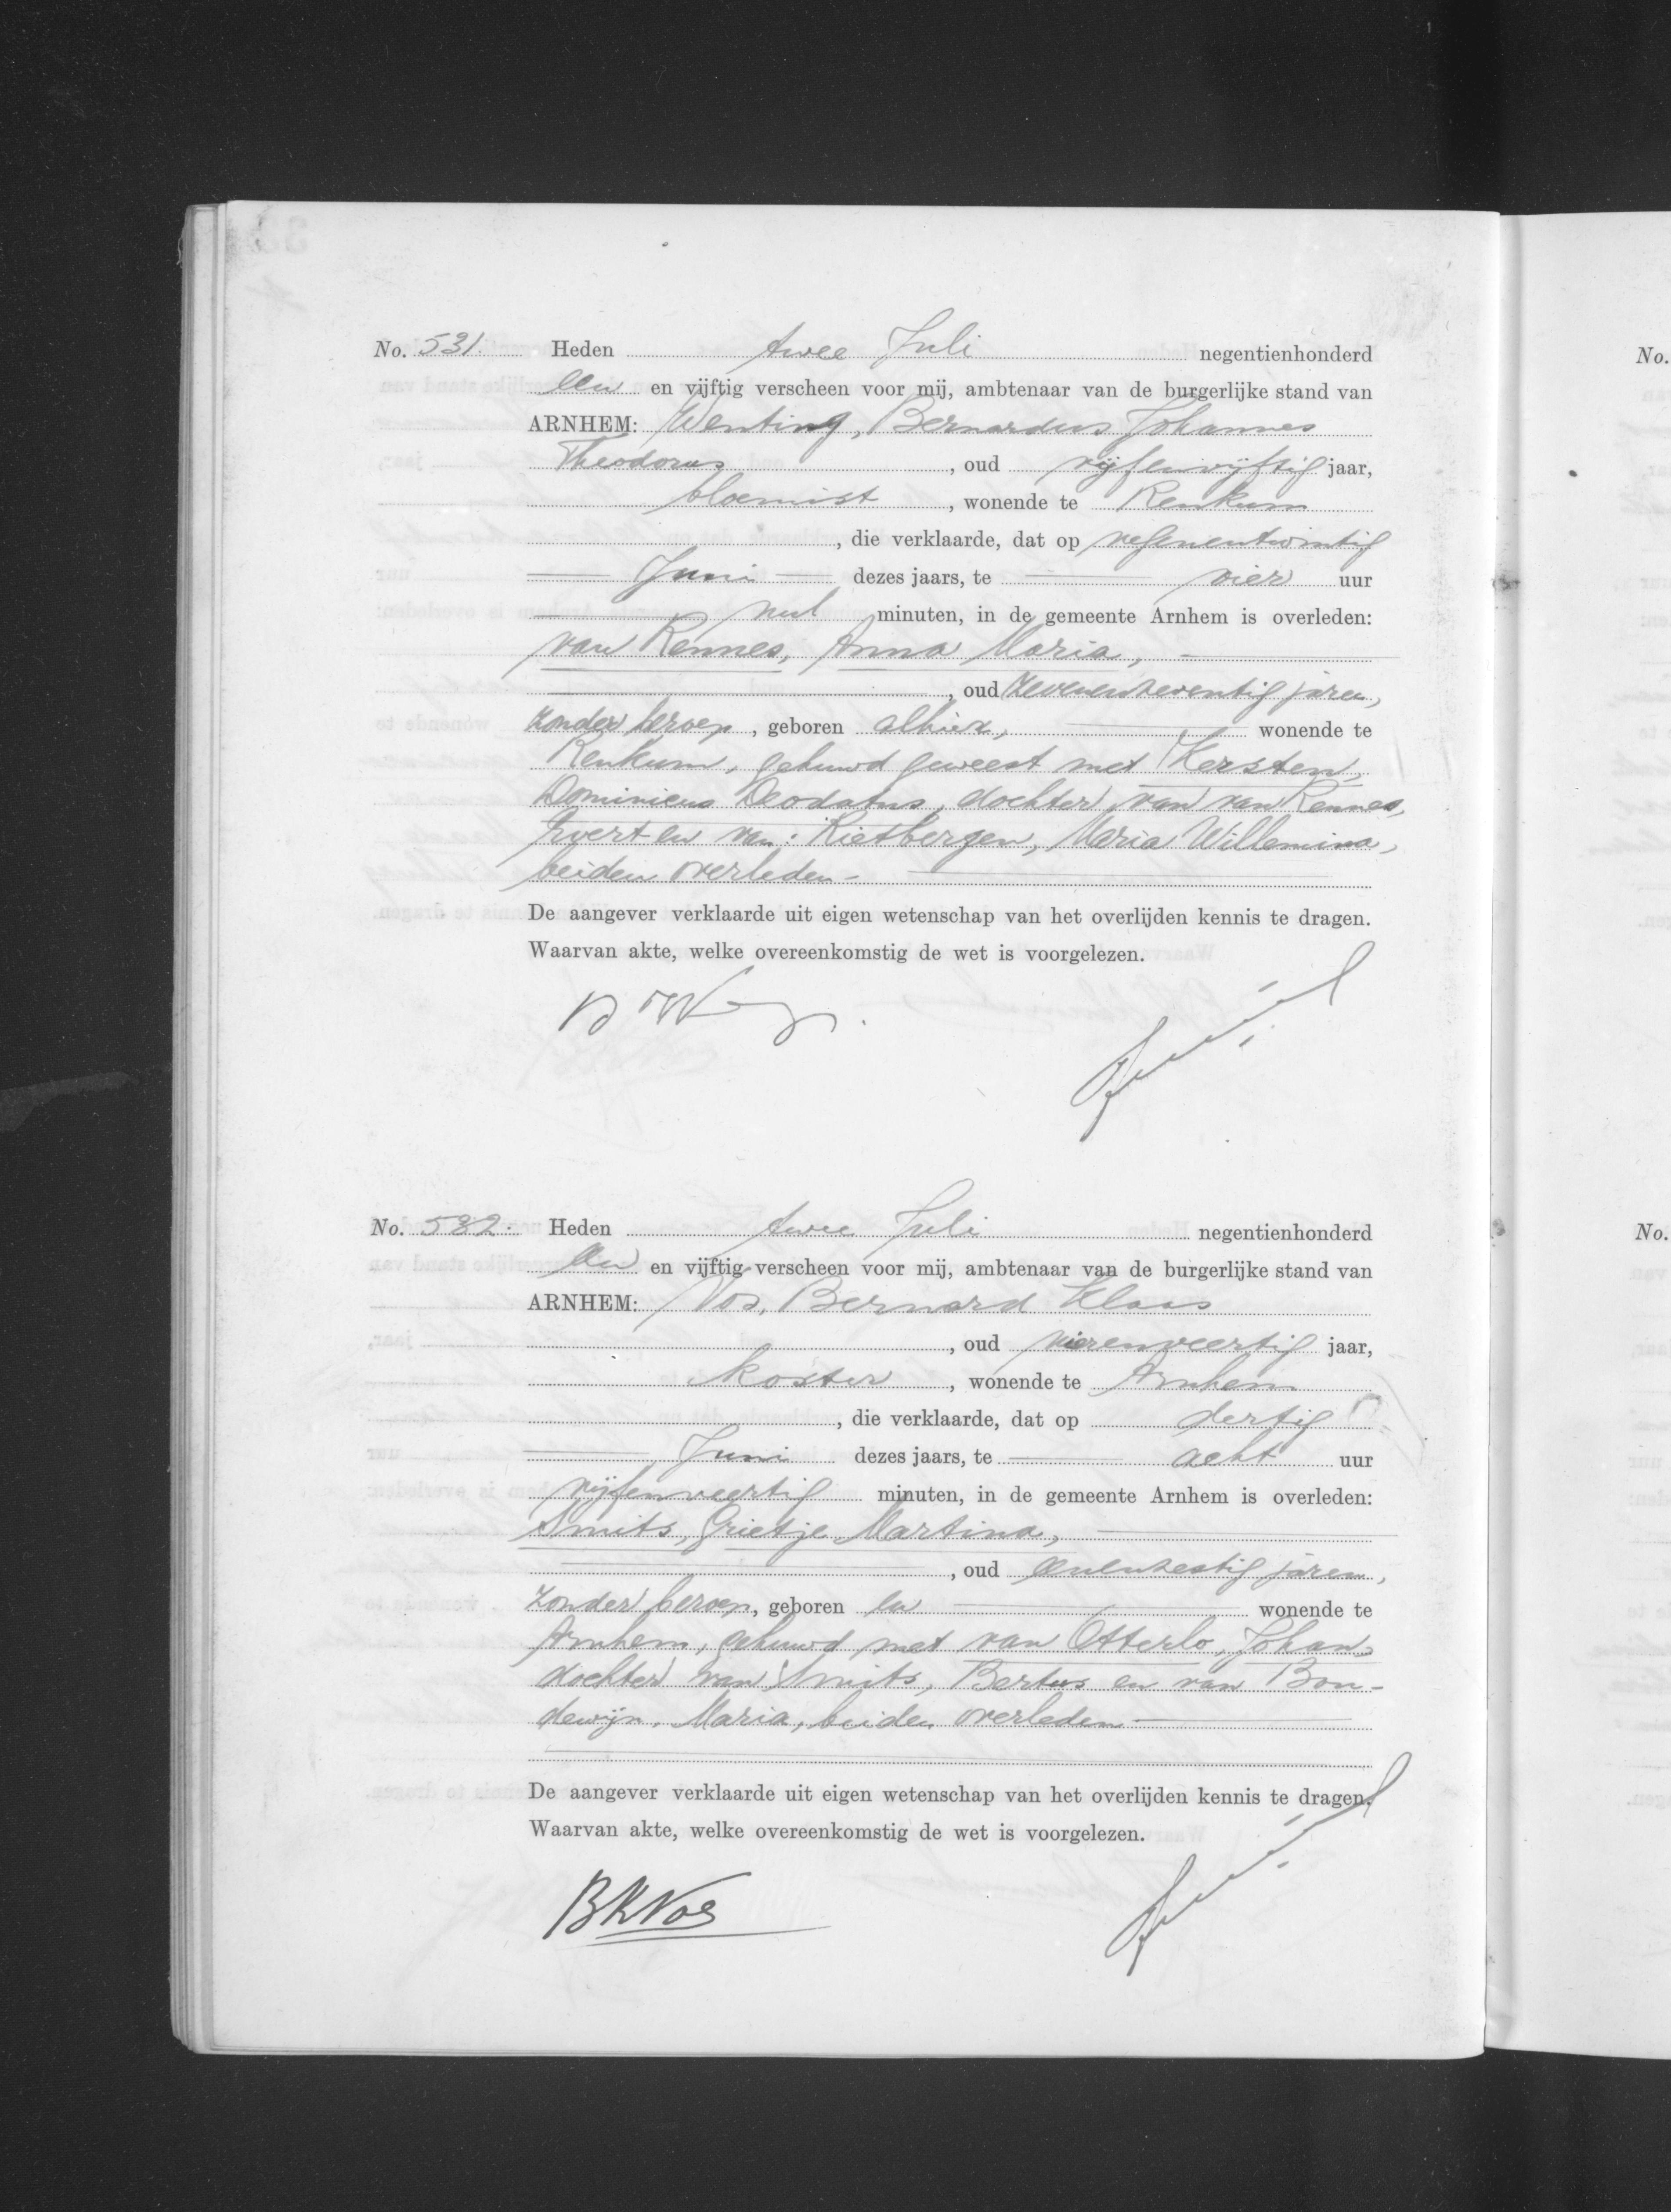 No. 531. Heden twee Juli negentienhonderd
een en vijftig verscheen voor mij, ambtenaar van de burgerlijke stand van
ARNHEM: Wenting, Bernardus Johannes
Theodorus , oud vijfenvijftig jaar,
bloemist , wonende te Renkum
, die verklaarde, dat op negenentwintig
Juni dezes jaars, te vier uur
nul minuten, in de gemeente Arnhem is overleden:
van Rennes, Anna Maria,
, oud zevenenzeventig jaren,
zonder beroep , geboren alhier, wonende te
Renkum, gehuwd geweest met Kersten,
Dominicus Deodatus, dochter van van Rennes,
Evert en van: Rietbergen, Maria Willemina,
beiden overleden.
De aangever verklaarde uit eigen wetenschap van het overlijden kennis te dragen.
Waarvan akte, welke overeenkomstig de wet is voorgelezen.
No. 532. Heden twee Juli negentienhonderd
een en vijftig verscheen voor mij, ambtenaar van de burgerlijke stand van
ARNHEM: Vos, Bernard Klaas
, oud vierenveertig jaar,
koster , wonende te Arnhem
, die verklaarde, dat op dertig
Juni dezes jaars, te acht uur
vijfenveertig minuten, in de gemeente Arnhem is overleden:
Smits, Grietje Martina,
, oud eenenzestig jaren,
zonder beroep, geboren en wonende te
Arnhem, gehuwd met van Otterlo, Johan,
dochter van Smits, Bertus en van Bou-
dewijn, Maria, beiden overleden
De aangever verklaarde uit eigen wetenschap van het overlijden kennis te dragen.
Waarvan akte, welke overeenkomstig de wet is voorgelezen.
BKVos
No.
No.